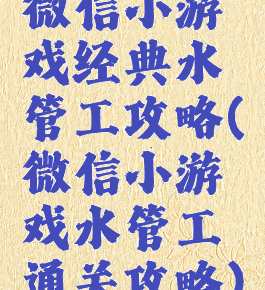 微信小游
戏经典水
管工攻略(
微信小游
戏水管工
通关攻略)